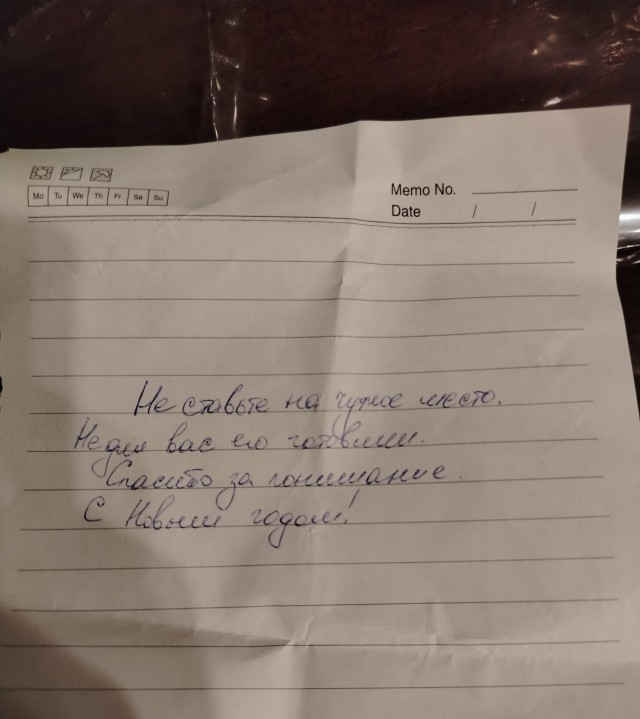 Mo Tu We Th Fr Sa Su
Memo No.
Date / /
Не ставьте на чужое место.
Не для вас его готовили.
Спасибо за понимание.
С Новым годом!